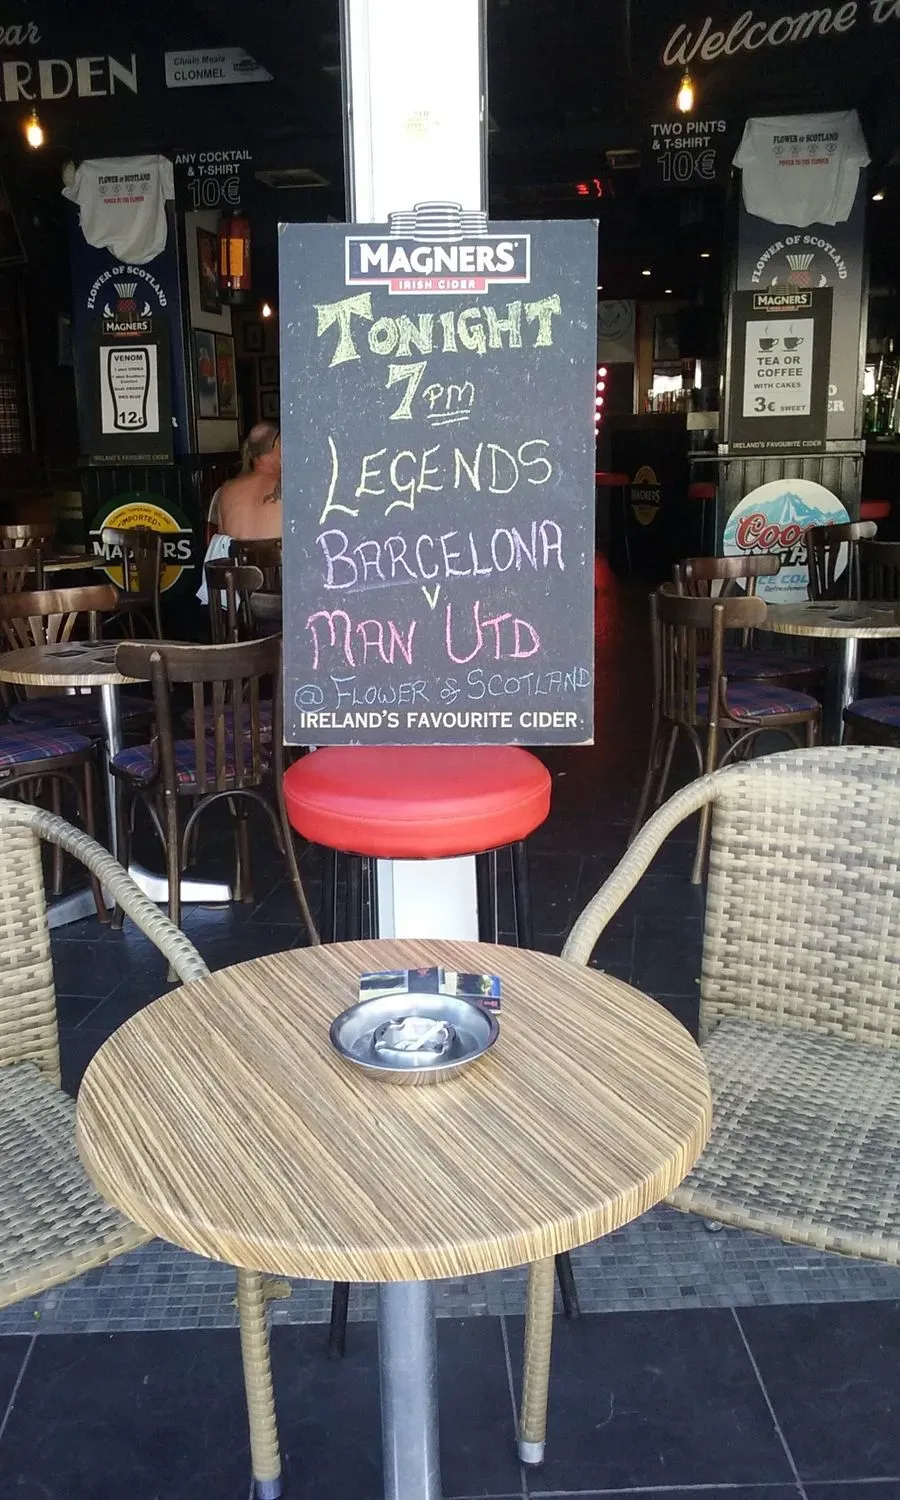 ear
ARDEN
Cluain Meala
CLONMEL
Welcome t
ANY COCKTAIL
& T-SHIRT
10€
TWO PINTS
& T-SHIRT
10€
FLOWER of SCOTLAND
POWER TO THE FLOWER
FLOWER OF SCOTLAND
POWER TO THE FLOWER
FLOWER OF SCOTLAND
MAGNERS
VENOM
1 shot VODKA
1 shot Southern
Comfort
Dash ORANGE
RED BLUE
12€
IRELAND'S FAVOURITE CIDER
IMPORTED
MA RS
MAGNERS
IRISH CIDER
TONIGHT
7PM
LEGENDS
BARCELONA
V
MAN UTD
@ FLOWER of SCOTLAND
IRELAND'S FAVOURITE CIDER
FLOWER OF SCOTLAND
MAGNERS
TEA OR
COFFEE
WITH CAKES
3€ SWEET
IRELAND'S FAVOURITE CIDER
MAGNERS
Coors
ICE COL